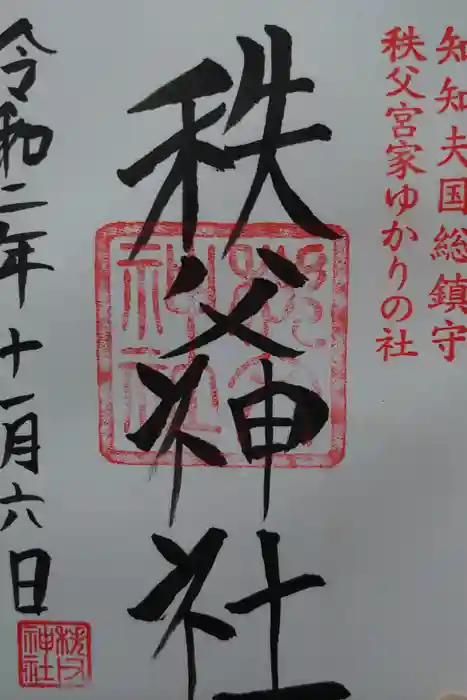 知知夫国総鎮守
秩父宮家ゆかりの社
秩父神社
令和二年十一月六日
秩父神社